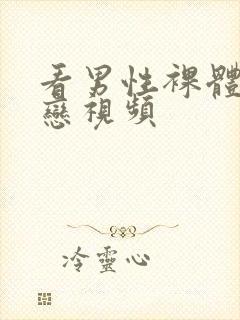 看男性裸體
戀視頻
冷靈心